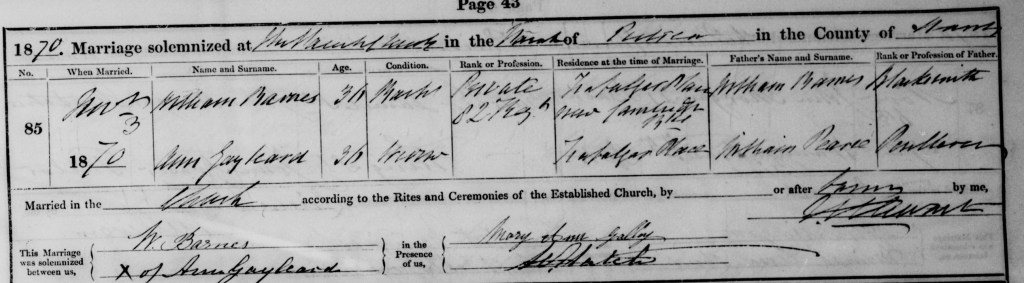 Page 43
1870. Marriage solemnized at The Parish Church in the Parish of Portsea in the County of Hants
No. When Married. Name and Surname. Age. Condition. Rank or Profession. Residence at the time of Marriage. Father's Name and Surname. Rank or Profession of Father.
85 Novr 3 1870 William Barnes 36 Bach Private 82 Regt Trafalgar Place William Barnes Blacksmith
Ann Gayleard 36 Widow Trafalgar Place William Pearce
Married in the Church according to the Rites and Ceremonies of the Established Church, by or after Banns by me,
Stewart
This Marriage was solemnized between us, W. Barnes in the Presence of us, Mary Ann
X of Ann Gayleard